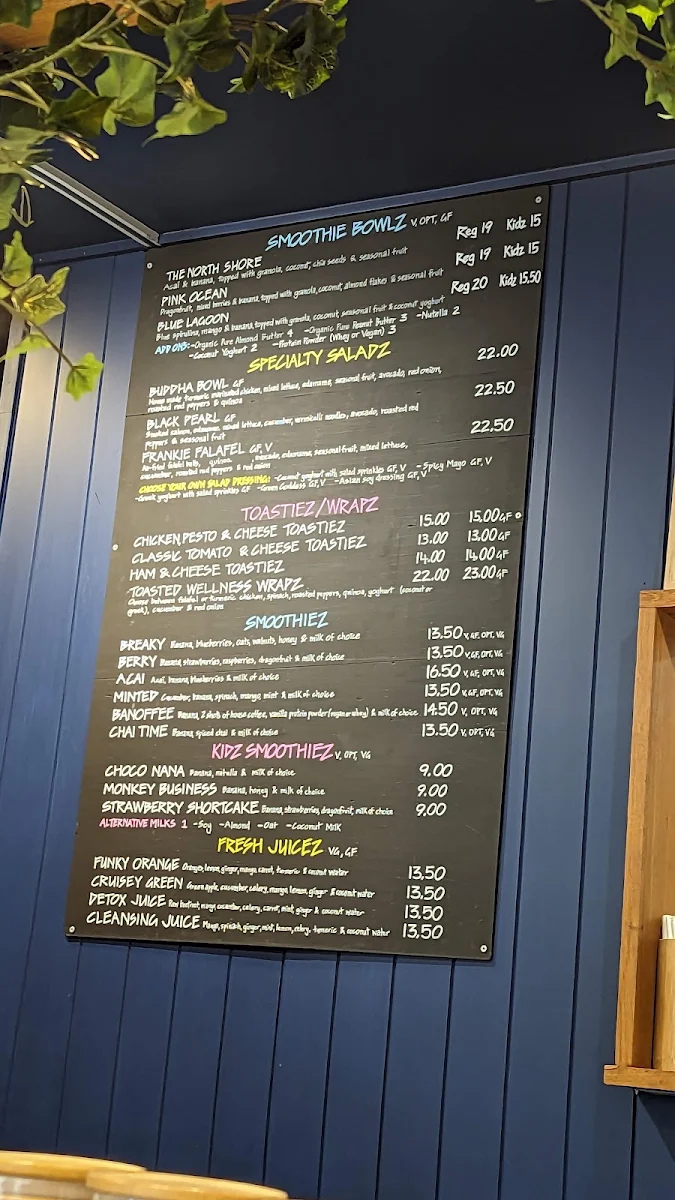 SMOOTHIE BOWLZ V, OPT, GF
THE NORTH SHORE Reg 19 Kidz 15
Acai & banana, topped with granola, coconut, chia seeds & seasonal fruit
PINK OCEAN Reg 19 Kidz 15
Dragonfruit, mixed berries & banana, topped with granola, coconut, almond flakes & seasonal fruit
BLUE LAGOON Reg 20 Kidz 15.50
Blue spirulina, mango & banana, topped with granola, coconut, seasonal fruit & coconut yoghurt
ADD ONS: -Organic Pure Almond Butter 4 -Organic Pure Peanut Butter 3 -Nutella 2
-Coconut Yoghurt 2 -Protein Powder (Whey or Vegan) 3
SPECIALTY SALADZ
BUDDHA BOWL GF 22.00
Home made turmeric marinated chicken, mixed lettuce, edamame, seasonal fruit, avocado, red onion,
roasted red peppers & quinoa
BLACK PEARL GF 22.50
Smoked salmon, edamame, mixed lettuce, cucumber, vermicelli noodles, avocado, roasted red
peppers & seasonal fruit
FRANKIE FALAFEL GF, V 22.50
Air-fried falafel balls, quinoa, avocado, edamame, seasonal fruit, mixed lettuce,
cucumber, roasted red peppers & red onion
CHOOSE YOUR OWN SALAD DRESSING: -Coconut yoghurt with salad sprinkles GF, V -Spicy Mayo GF, V
-Greek yoghurt with salad sprinkles GF -Green Goddess GF, V -Asian soy dressing GF, V
TOASTIEZ/WRAPZ
CHICKEN, PESTO & CHEESE TOASTIEZ 15.00 15.00 GF
CLASSIC TOMATO & CHEESE TOASTIEZ 13.00 13.00 GF
HAM & CHEESE TOASTIEZ 14.00 14.00 GF
TOASTED WELLNESS WRAPZ 22.00 23.00 GF
Choose between falafel or turmeric chicken, spinach, roasted peppers, quinoa, yoghurt (coconut or
greek), cucumber & red onion
SMOOTHIEZ
BREAKY Banana, blueberries, oats, walnuts, honey & milk of choice 13.50 V, GF, OPT, VG
BERRY Banana, strawberries, raspberries, dragonfruit & milk of choice 13.50 V, GF, OPT, VG
ACAI Acai, banana, blueberries & milk of choice 16.50 V, GF, OPT, VG
MINTED Cucumber, banana, spinach, mango, mint & milk of choice 13.50 V, GF, OPT, VG
BANOFFEE Banana, 2 shots of house coffee, vanilla protein powder (vegan or whey) & milk of choice 14.50 V, OPT, VG
CHAI TIME Banana, spiced chai & milk of choice 13.50 V, OPT, VG
KIDZ SMOOTHIEZ V, OPT, VG
CHOCO NANA Banana, nutella & milk of choice 9.00
MONKEY BUSINESS Banana, honey & milk of choice 9.00
STRAWBERRY SHORTCAKE Banana, strawberries, dragonfruit, milk of choice 9.00
ALTERNATIVE MILKS 1 -Soy -Almond -Oat -Coconut Milk
FRESH JUICEZ VG, GF
FUNKY ORANGE Oranges, lemon, ginger, mango, carrot, turmeric & coconut water 13.50
CRUISEY GREEN Green apple, cucumber, celery, mango, lemon, ginger & coconut water 13.50
DETOX JUICE Raw beetroot, mango, cucumber, celery, carrot, mint, ginger & coconut water 13.50
CLEANSING JUICE Mango, spinach, ginger, mint, lemon, celery, turmeric & coconut water 13.50